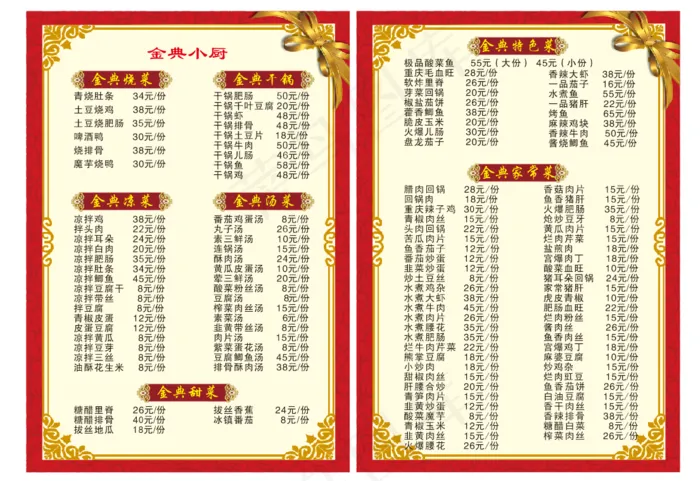 金典小厨
金典烧菜
青烧肚条 34元/份
土豆烧鸡 38元/份
土豆烧肥肠 35元/份
啤酒鸭 30元/份
烧排骨 38元/份
魔芋烧鸭 30元/份
金典干锅
干锅肥肠 50元/份
干锅千叶豆腐 20元/份
干锅虾 48元/份
干锅排骨 48元/份
干锅土豆片 18元/份
干锅牛肉 50元/份
干锅儿肠 46元/份
干锅鱼 58元/份
干锅鸡 48元/份
金典凉菜
凉拌鸡 38元/份
拌头肉 22元/份
凉拌耳朵 24元/份
凉拌白肉 20元/份
凉拌肥肠 35元/份
凉拌肚条 34元/份
凉拌鲫鱼 45元/份
凉拌豆腐干 8元/份
凉拌带丝 8元/份
拌豆腐 8元/份
青椒皮蛋 12元/份
皮蛋豆腐 12元/份
凉拌黄瓜 8元/份
凉拌豆芽 8元/份
凉拌三丝 8元/份
油酥花生米 8元/份
金典汤菜
番茄鸡蛋汤 8元/份
丸子汤 26元/份
素三鲜汤 10元/份
连锅汤 15元/份
酥肉汤 24元/份
黄瓜皮蛋汤 10元/份
荤三鲜汤 20元/份
酸菜粉丝汤 8元/份
豆腐汤 8元/份
榨菜肉丝汤 15元/份
素菜汤 6元/份
韭黄带丝汤 8元/份
肉片汤 15元/份
紫菜蛋花汤 8元/份
豆腐鲫鱼汤 45元/份
排骨酥肉汤 38元/份
金典甜菜
糖醋里脊 26元/份
糖醋排骨 40元/份
拔丝地瓜 18元/份
拔丝香蕉 24元/份
冰镇番茄 8元/份
金典特色菜
极品酸菜鱼 55元(大份) 45元(小份)
重庆毛血旺 28元/份
软炸里脊 26元/份
芽菜回锅 20元/份
椒盐茄饼 26元/份
藿香鲫鱼 38元/份
脆皮玉米 20元/份
火爆儿肠 30元/份
盘龙茄子 20元/份
香辣大虾 38元/份
一品茄子 16元/份
水煮鱼 55元/份
一品猪肝 22元/份
烤鱼 65元/份
麻辣鸡块 38元/份
香辣牛肉 50元/份
酱烧鲫鱼 45元/份
金典家常菜
腊肉回锅 28元/份
回锅肉 18元/份
重庆辣子鸡 30元/份
青椒肉丝 15元/份
头肉回锅 22元/份
苦瓜肉片 15元/份
鱼香茄子 12元/份
番茄炒蛋 12元/份
韭菜炒蛋 12元/份
炒土豆丝 8元/份
水煮鸡杂 26元/份
水煮大虾 38元/份
水煮牛肉 45元/份
水煮肉片 26元/份
水煮腰花 35元/份
水煮肥肠 35元/份
烂牛肉芹菜 22元/份
熊掌豆腐 15元/份
小炒肉 18元/份
甜椒肉丝 15元/份
肝腰合炒 20元/份
青笋肉片 15元/份
韭黄炒蛋 12元/份
酸菜魔芋 8元/份
青椒玉米 12元/份
韭黄肉丝 15元/份
火爆腰花 26元/份
香菇肉片 15元/份
鱼香猪肝 15元/份
火爆肥肠 35元/份
炝炒豆芽 8元/份
黄瓜肉片 15元/份
烂肉芹菜 15元/份
盐煎肉 18元/份
宫爆肉丁 15元/份
酸菜血旺 10元/份
猪耳朵回锅 24元/份
家常猪肝 15元/份
虎皮青椒 10元/份
肥肠血旺 22元/份
烂肉粉丝 15元/份
酱肉丝 26元/份
鱼香肉丝 15元/份
宫爆鸡丁 16元/份
麻婆豆腐 10元/份
炒鸡杂 15元/份
烂肉豇豆 15元/份
鱼香茄饼 26元/份
白油豆腐 15元/份
香干肉丝 15元/份
香辣排骨 38元/份
糖醋白菜 8元/份
榨菜肉丝 26元/份